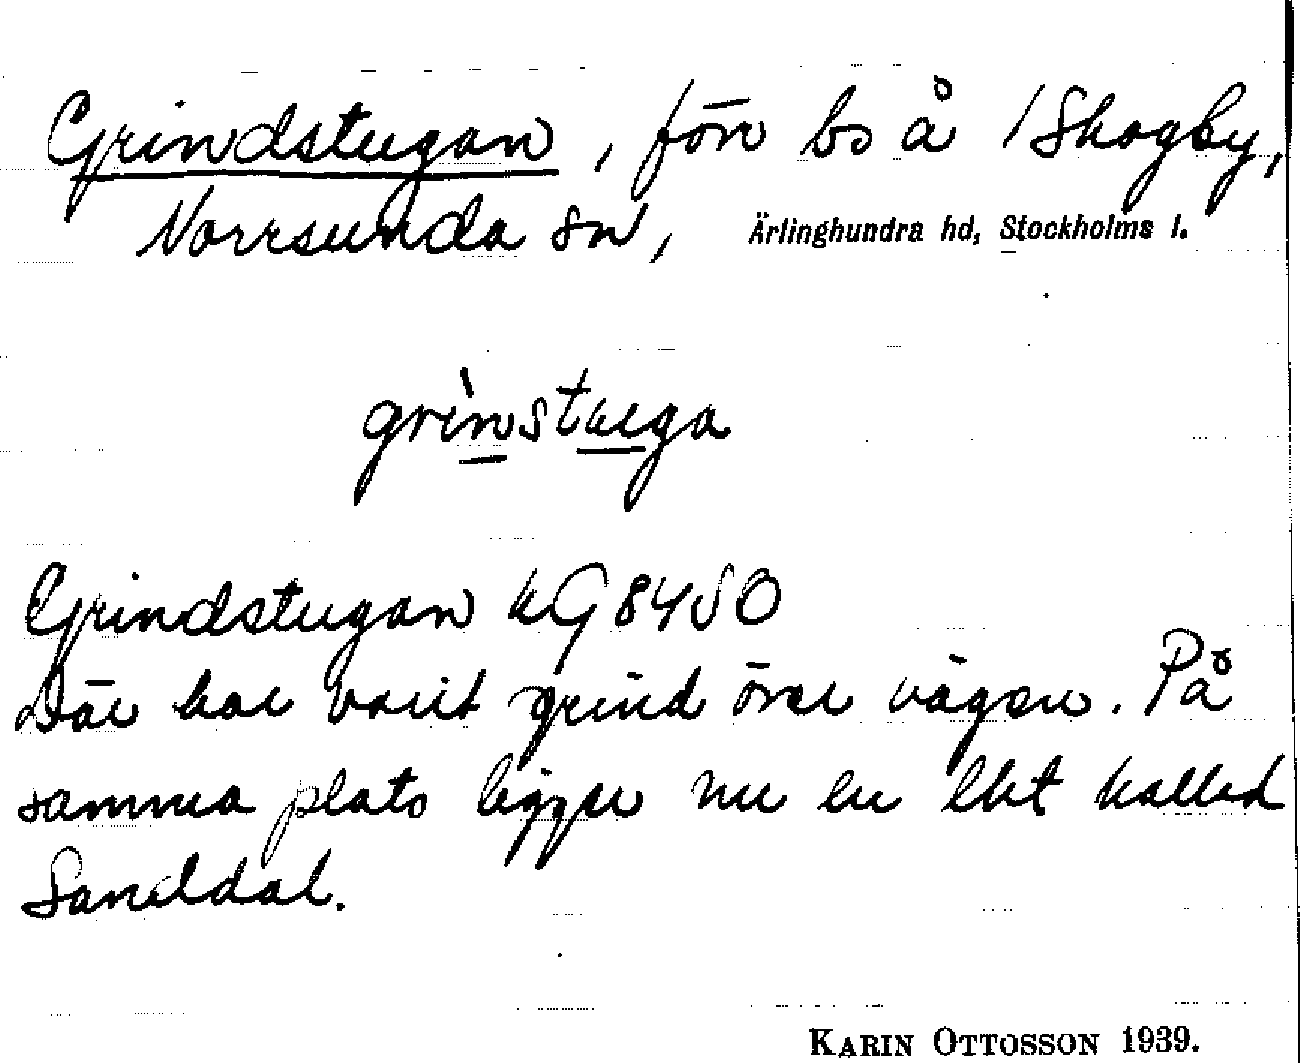 Grindstugan, förr bs å 1 Skogby,
Norrsunda sn, Ärlinghundra hd, Stockholms l.
grìnstuga
Grindstugan kG 8450
Där har varit grind över vägen. På
samma plats ligger nu en lht kallad
Sanddal.
KARIN OTTOSSON 1939.